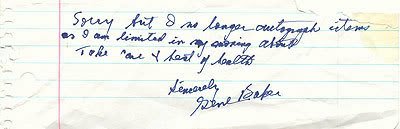 Sorry but I no longer autograph items
as I am limited in my moving about
Take care & best of health
Sincerely
Gene Baker